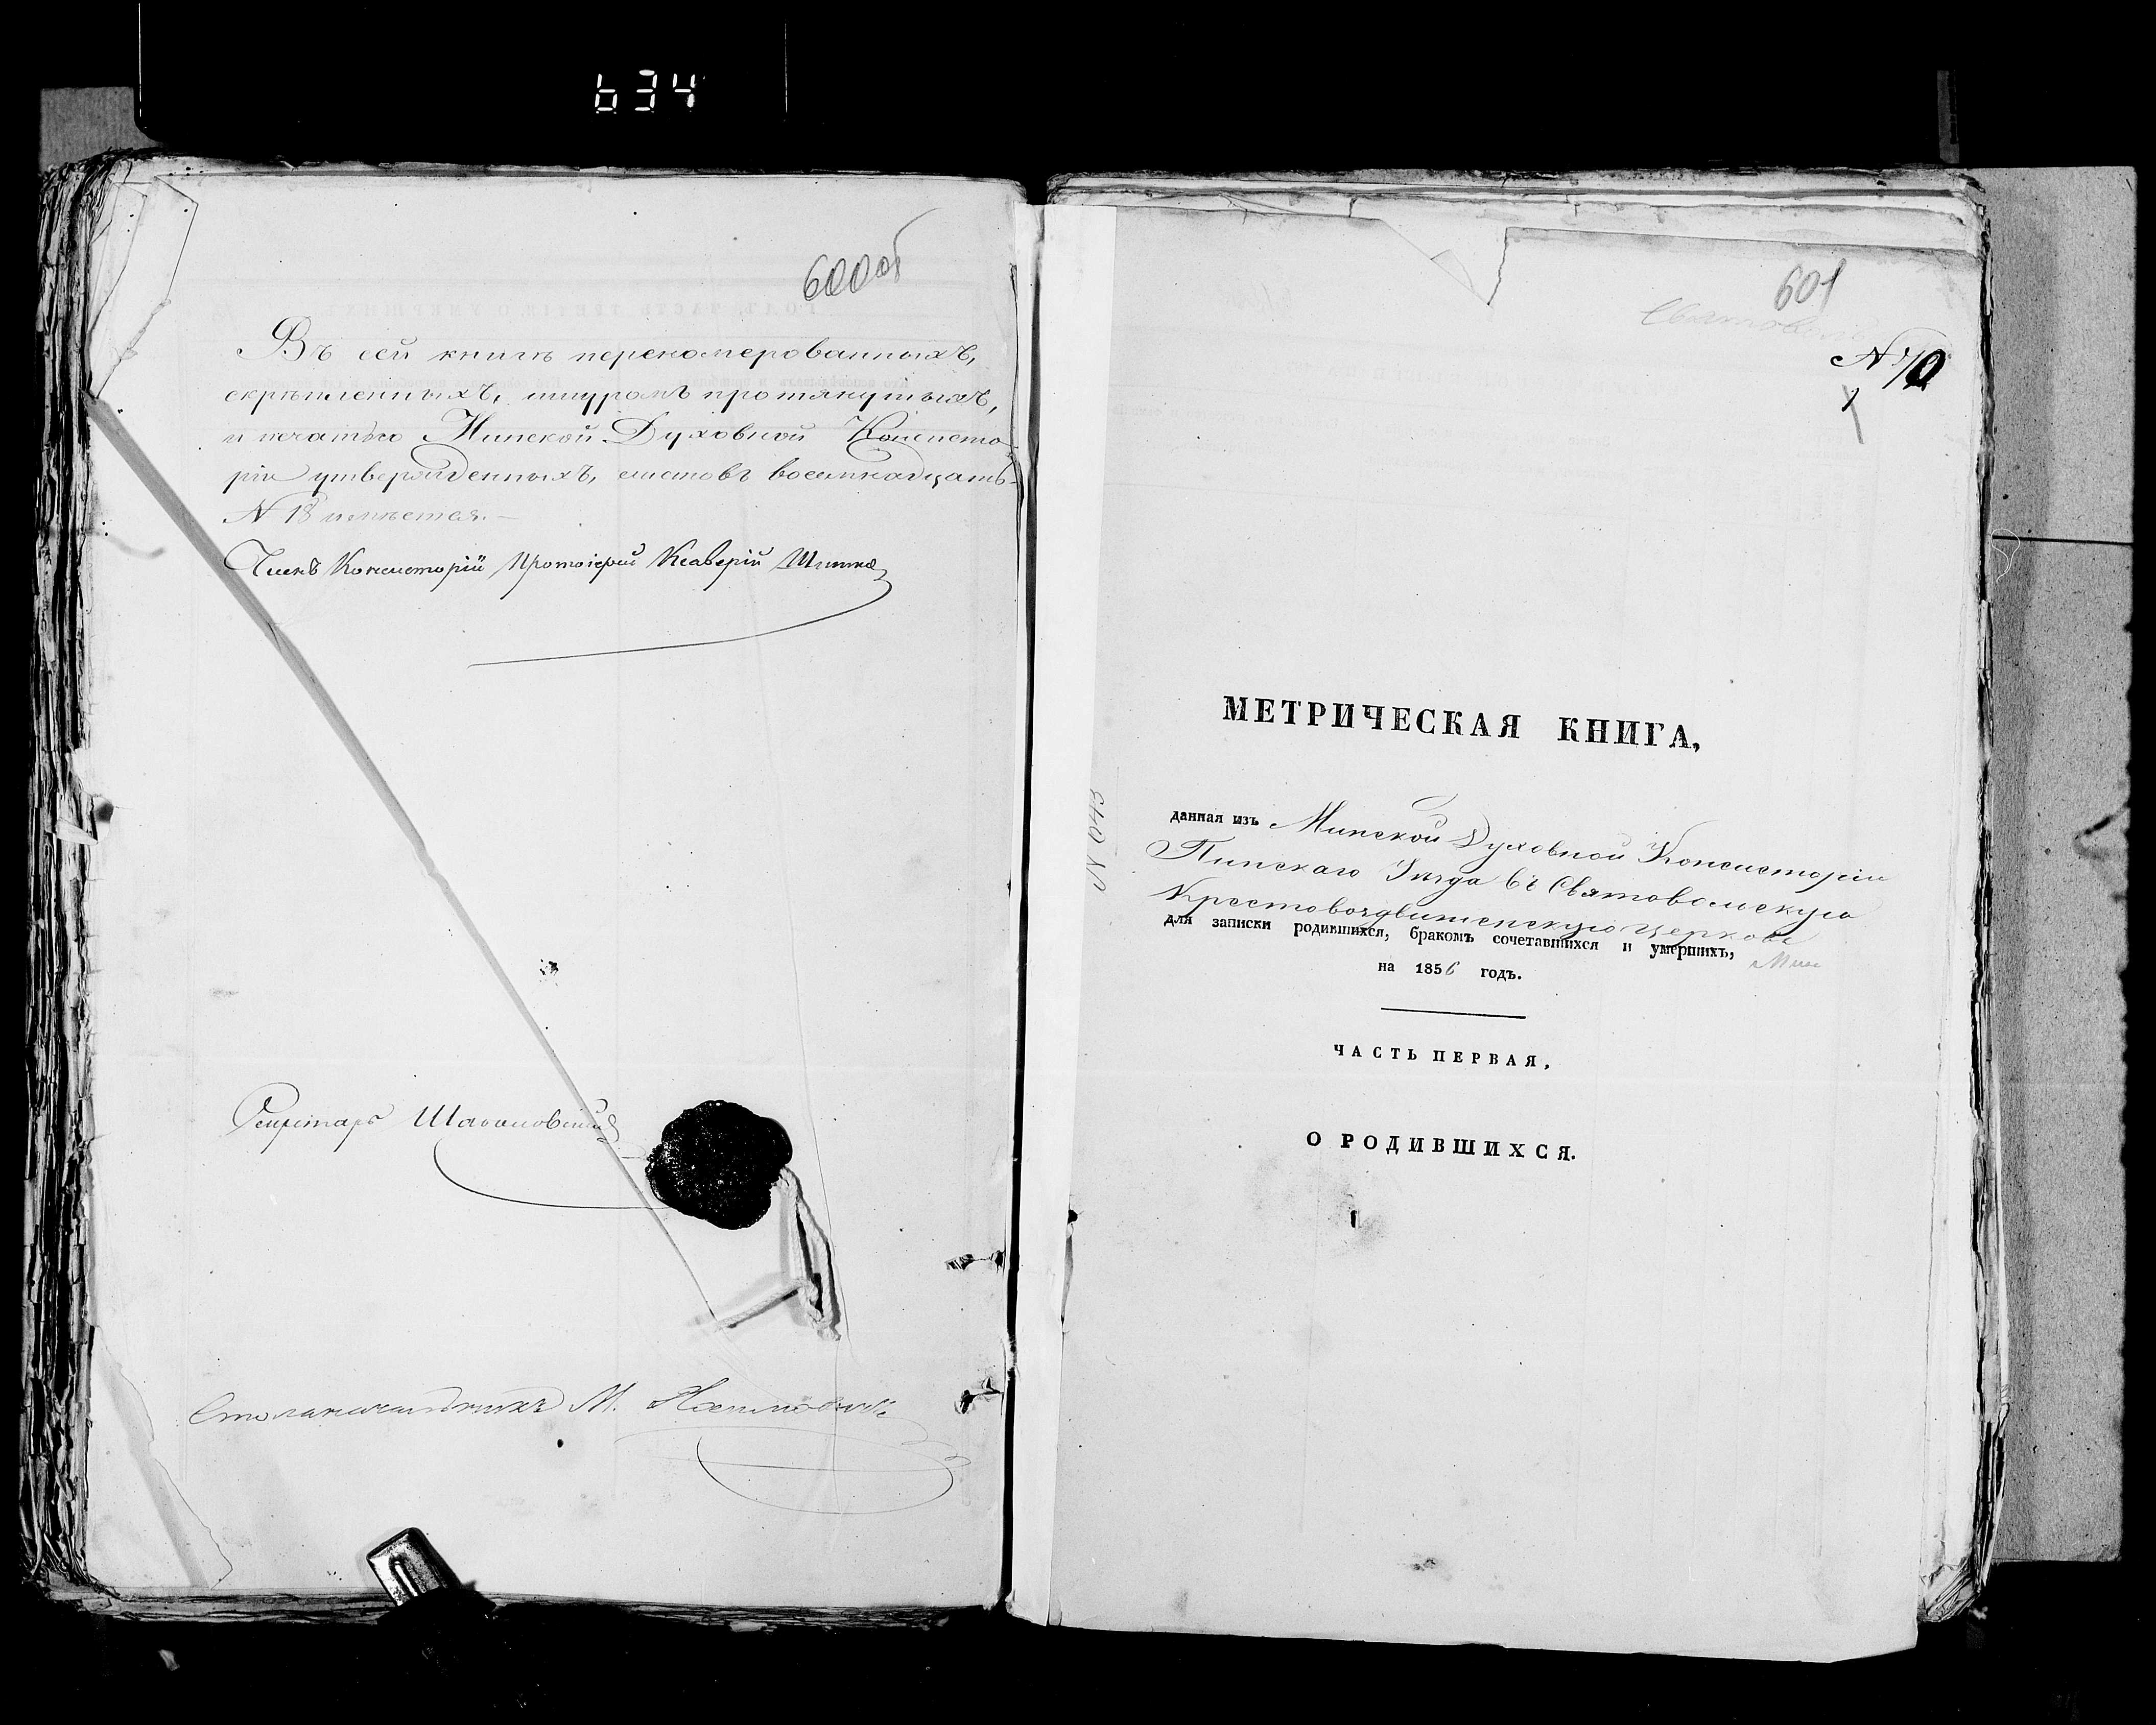 634
600об
Въ сей книгѣ переномерованныхъ,
скрѣпленныхъ, шнуромъ протянутыхъ,
и печатью Минской Духовной Консисто-
ріи утвержденныхъ, листовъ восемнадцать
N 18 имѣется.
Членъ Консисторіи Протоіерей Ксаверій
Секретарь
Столоначальникъ М.
601
N 70
1
МЕТРИЧЕСКАЯ КНИГА,
данная изъ Минской Духовной Консисторіи
Пинскаго Уѣзда въ Святовольскую
Крестовоздвиженскую церковь
для записки родившихся, бракомъ сочетавшихся и умершихъ,
на 1856 годъ.
ЧАСТЬ ПЕРВАЯ.
О РОДИВШИХСЯ.